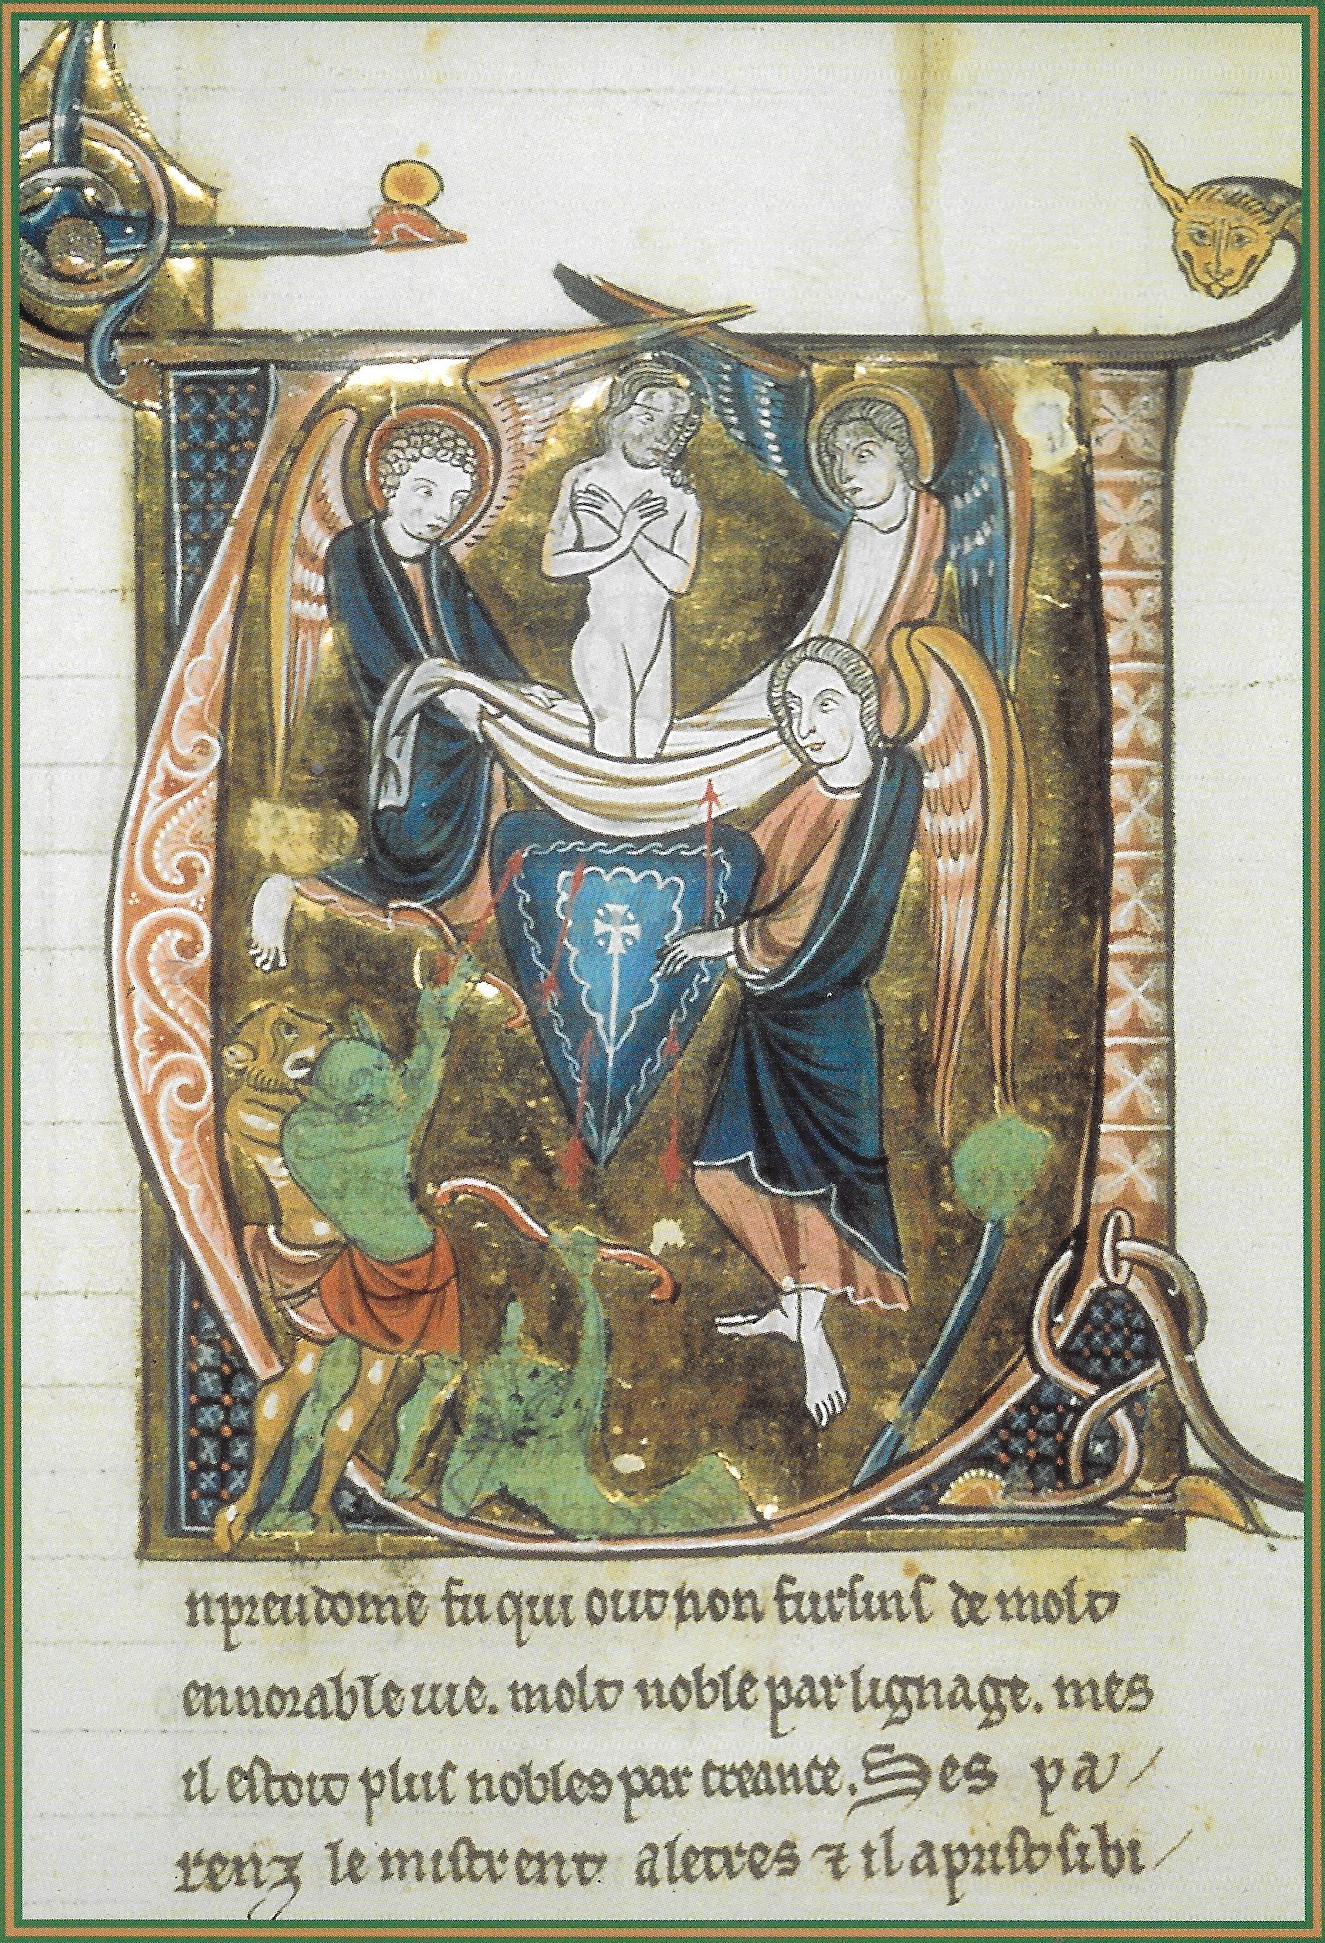 n preudome fu qui out non furſinſ de molt
ennorable uie. molt noble par lignage. mes
il eſtoit pluſ nobles par creance. Ses pa/
renz le miſtrent a letres ⁊ il apriſt ſi bi/